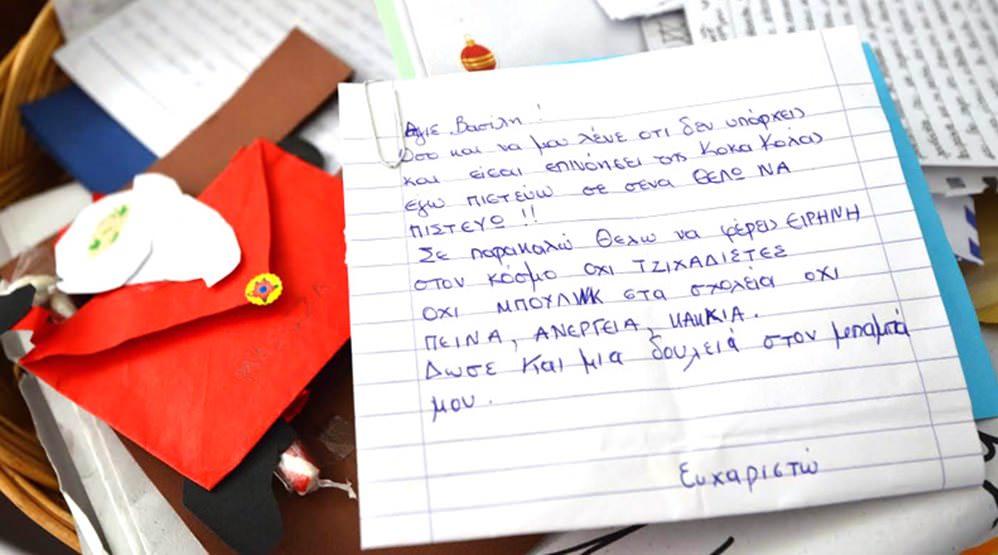 Αγιε Βασιλη!
Οσο και να μου λένε οτι δεν υπάρχεις
και εισαι επινόησει της Κοκα Κολας
εγω πιστεύω σε σενα ΘΕΛΩ ΝΑ
ΠΙΣΤΕΥΩ !!
Σε παρακαλώ θελω να φέρεις ΕΙΡΗΝΗ
στον κόσμο ΟΧΙ ΤΖΙΧΑΔΙΣΤΕΣ
ΟΧΙ ΜΠΟΥΛΙΝΚ στα σχολεία ΟΧΙ
ΠΕΙΝΑ, ΑΝΕΡΓΕΙΑ, ΚΑΚΚΙΑ.
Δωσε και μια δουλειά στον μπαμπά
μου.
Ευχαριστώ